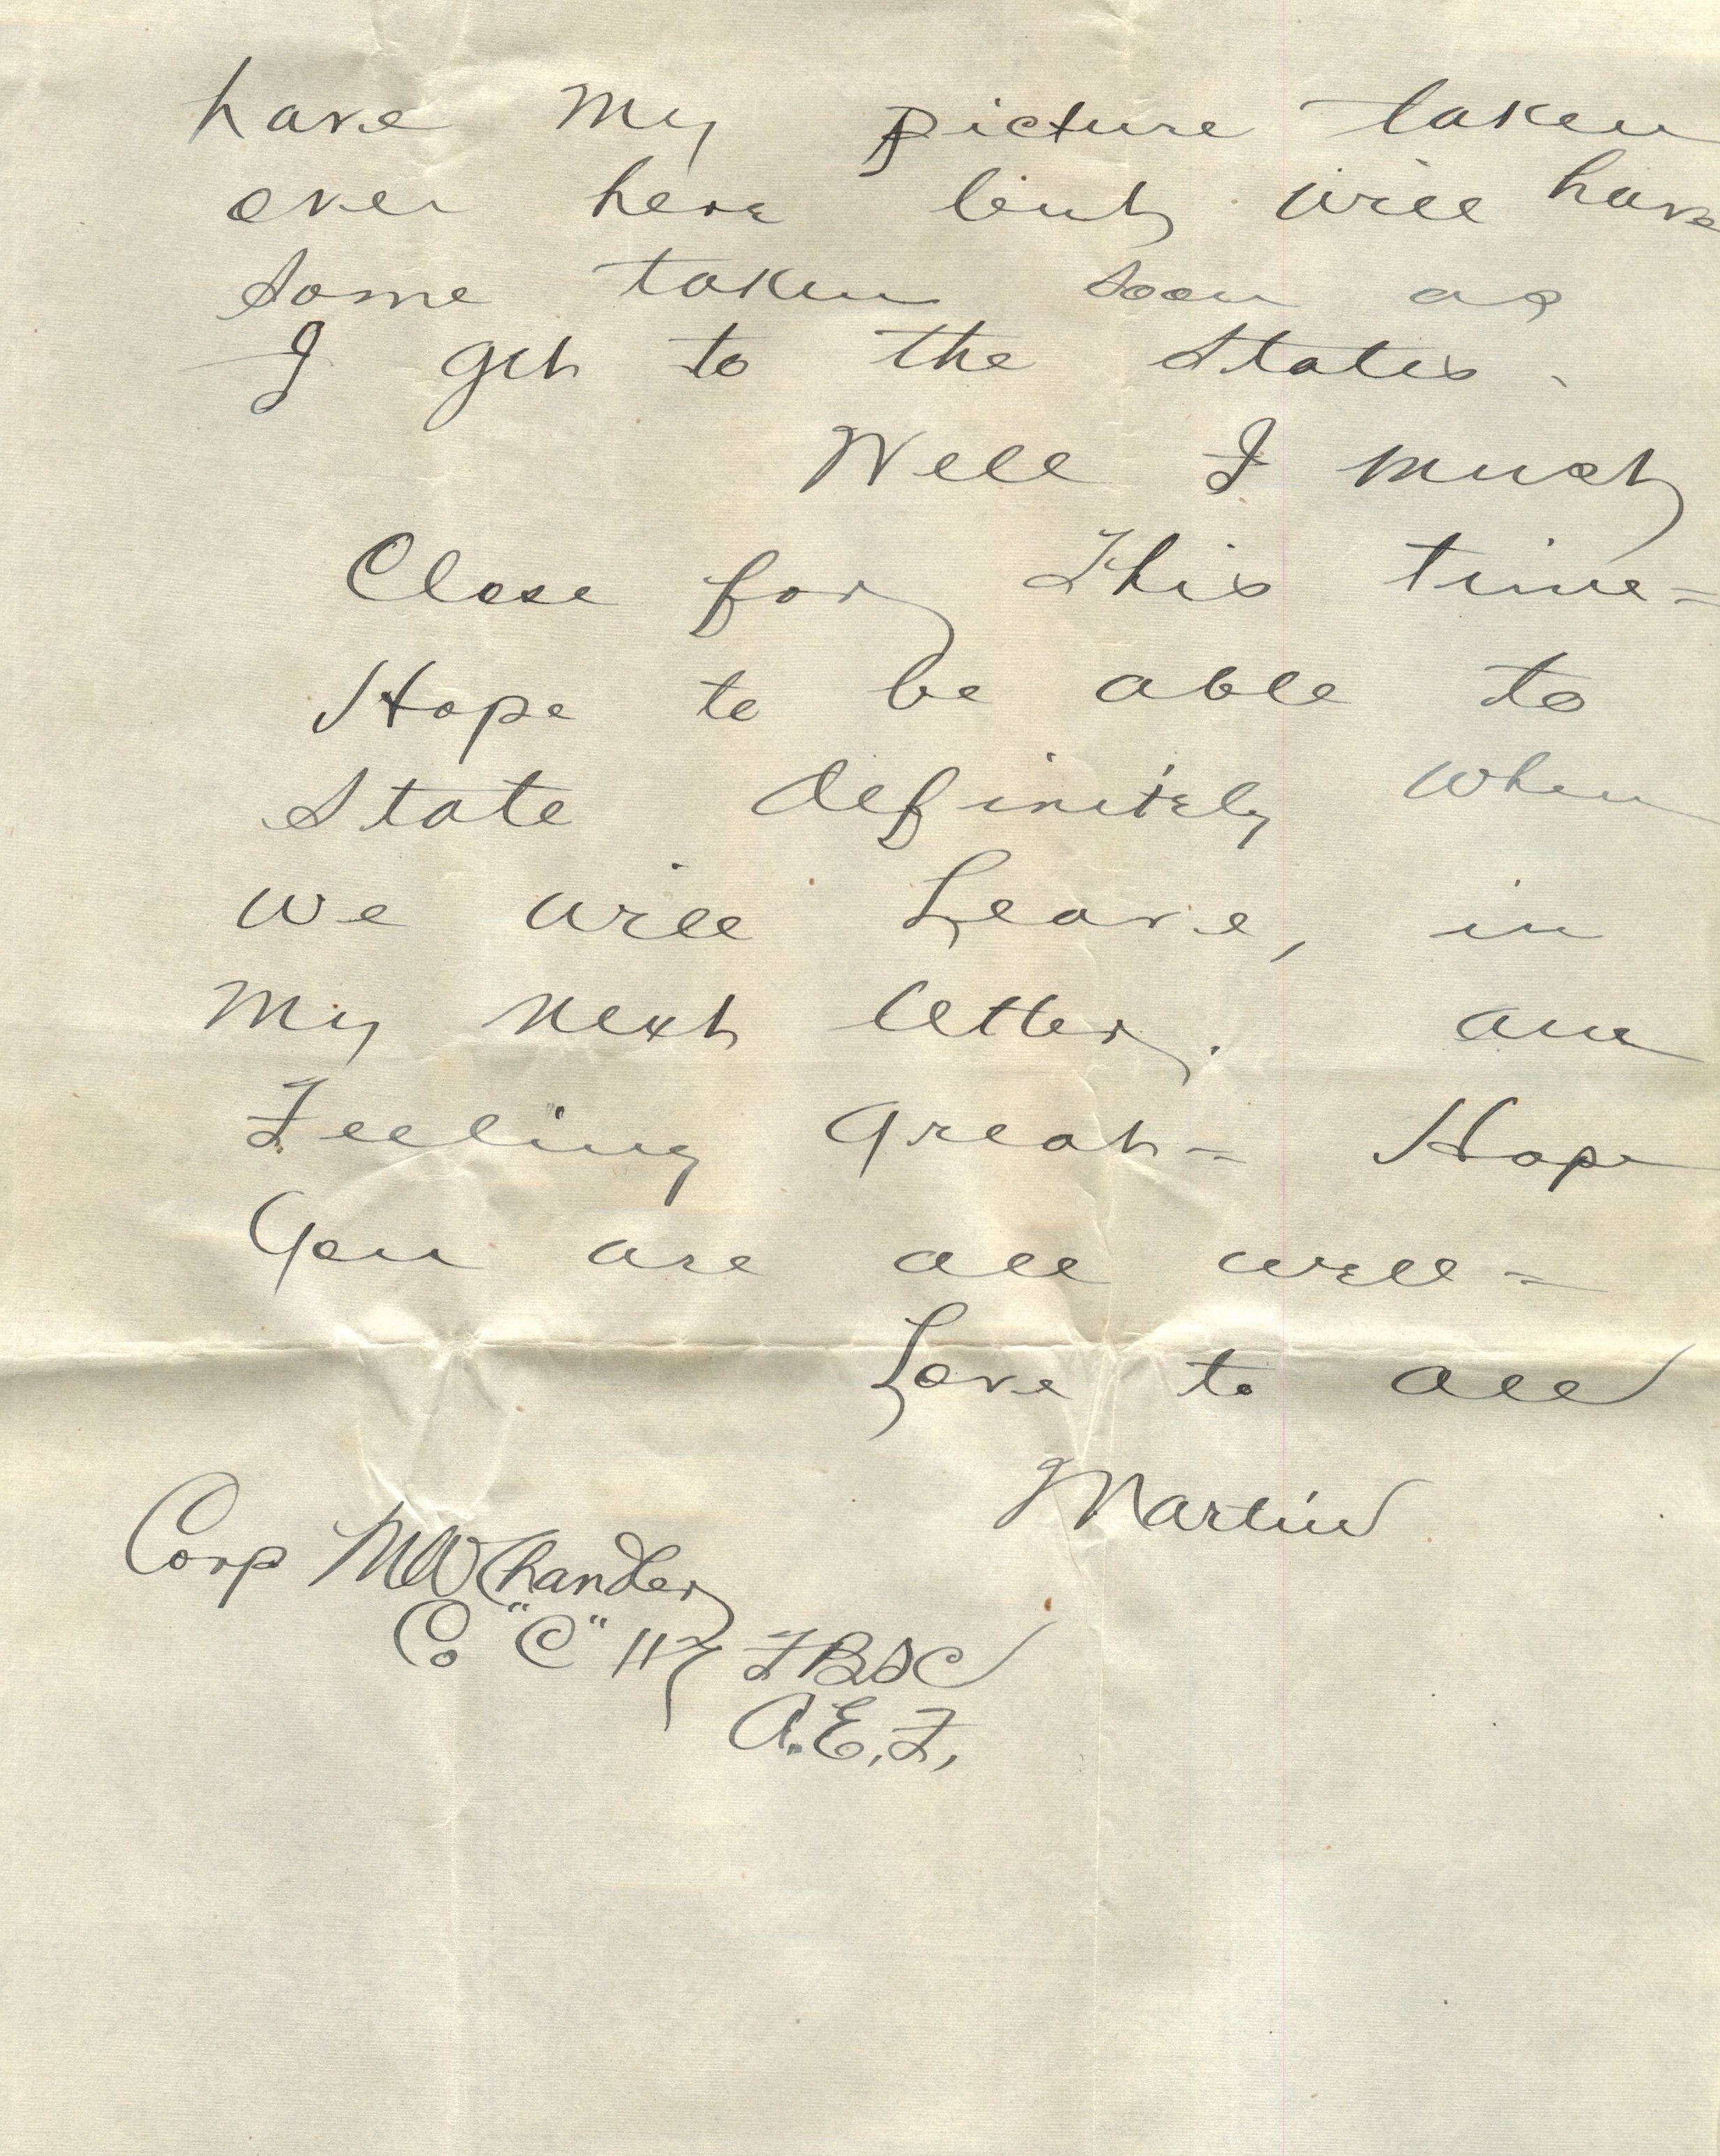 have my picture taken
over here but will have
some taken soon as
I get to the States.
Well I must
Close for This time =
Hope to be able to
State definitely when
we will Leave, in
My next letter. am
Feeling Great = Hope
You are all well =
Love to all
Martin
Corp MW Chandler
Co "C" 117 FBSC
A.E.F.